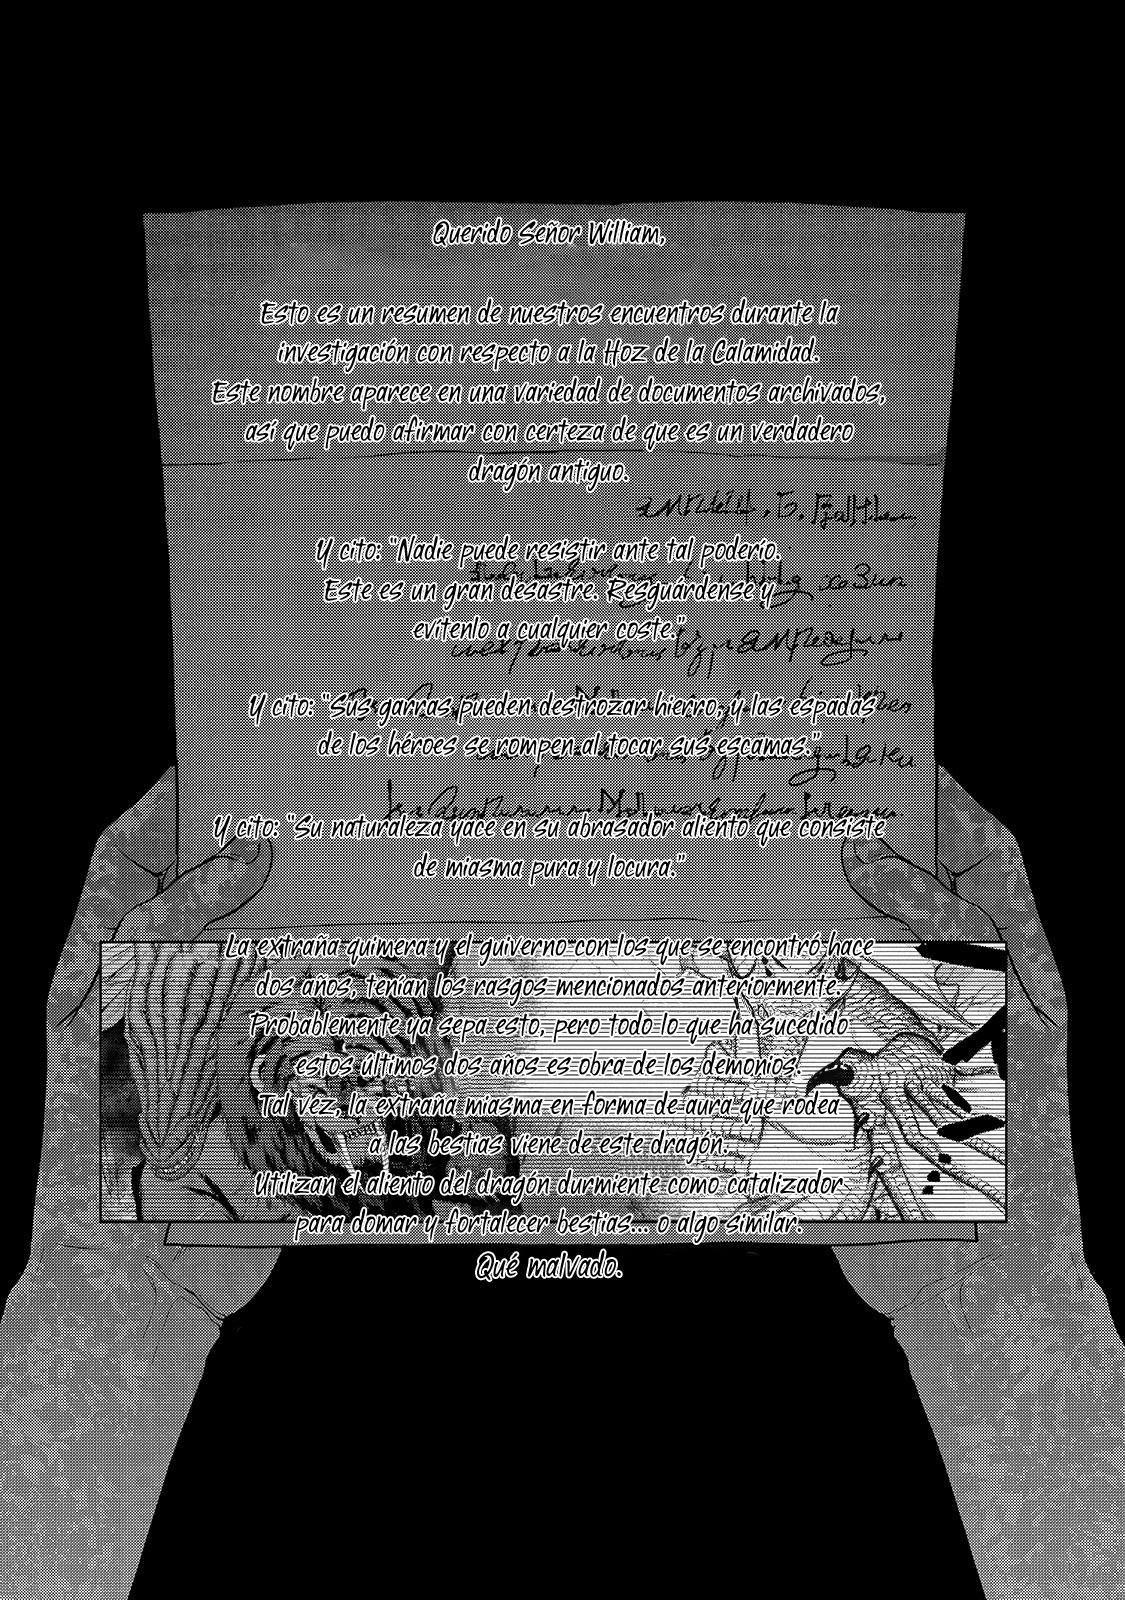 Querido Señor William,
Esto es un resumen de nuestros encuentros durante la
investigación con respecto a la Hoz de la Calamidad.
Este nombre aparece en una variedad de documentos archivados,
así que puedo afirmar con certeza de que es un verdadero
dragón antiguo.
Y cito: "Nadie puede resistir ante tal poderío.
Este es un gran desastre. Resguárdense y
evítenlo a cualquier coste."
Y cito: "Sus garras pueden destrozar hierro, y las espadas
de los héroes se rompen al tocar sus escamas."
Y cito: "Su naturaleza yace en su abrasador aliento que consiste
de miasma pura y locura."
La extraña quimera y el guiverno con los que se encontró hace
dos años, tenían los rasgos mencionados anteriormente.
Probablemente ya sepa esto, pero todo lo que ha sucedido
estos últimos dos años es obra de los demonios.
Tal vez, la extraña miasma en forma de aura que rodea
a las bestias viene de este dragón.
Utilizan el aliento del dragón durmiente como catalizador
para domar y fortalecer bestias... o algo similar.
Qué malvado.